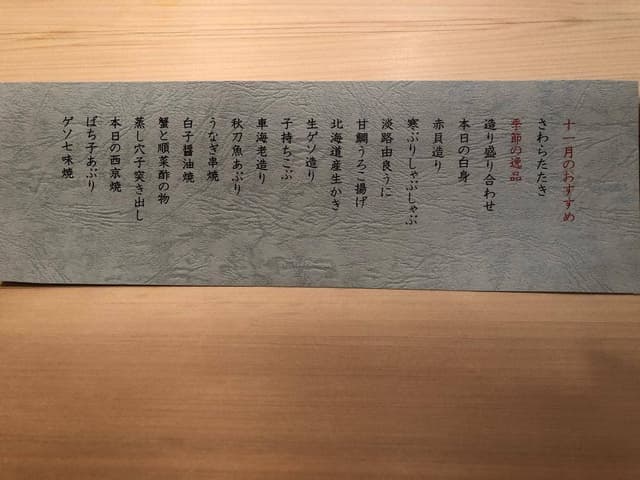 十一月のおすすめ
さわらたたき
季節の逸品
造り盛り合わせ
本日の白身
赤貝造り
寒ぶりしゃぶしゃぶ
淡路由良うに
甘鯛うろこ揚げ
北海道産生かき
生ゲソ造り
子持ちこぶ
車海老造り
秋刀魚あぶり
うなぎ串焼
白子醤油焼
蟹と順菜酢の物
蒸し穴子突き出し
本日の西京焼
ばち子あぶり
ゲソ七味焼